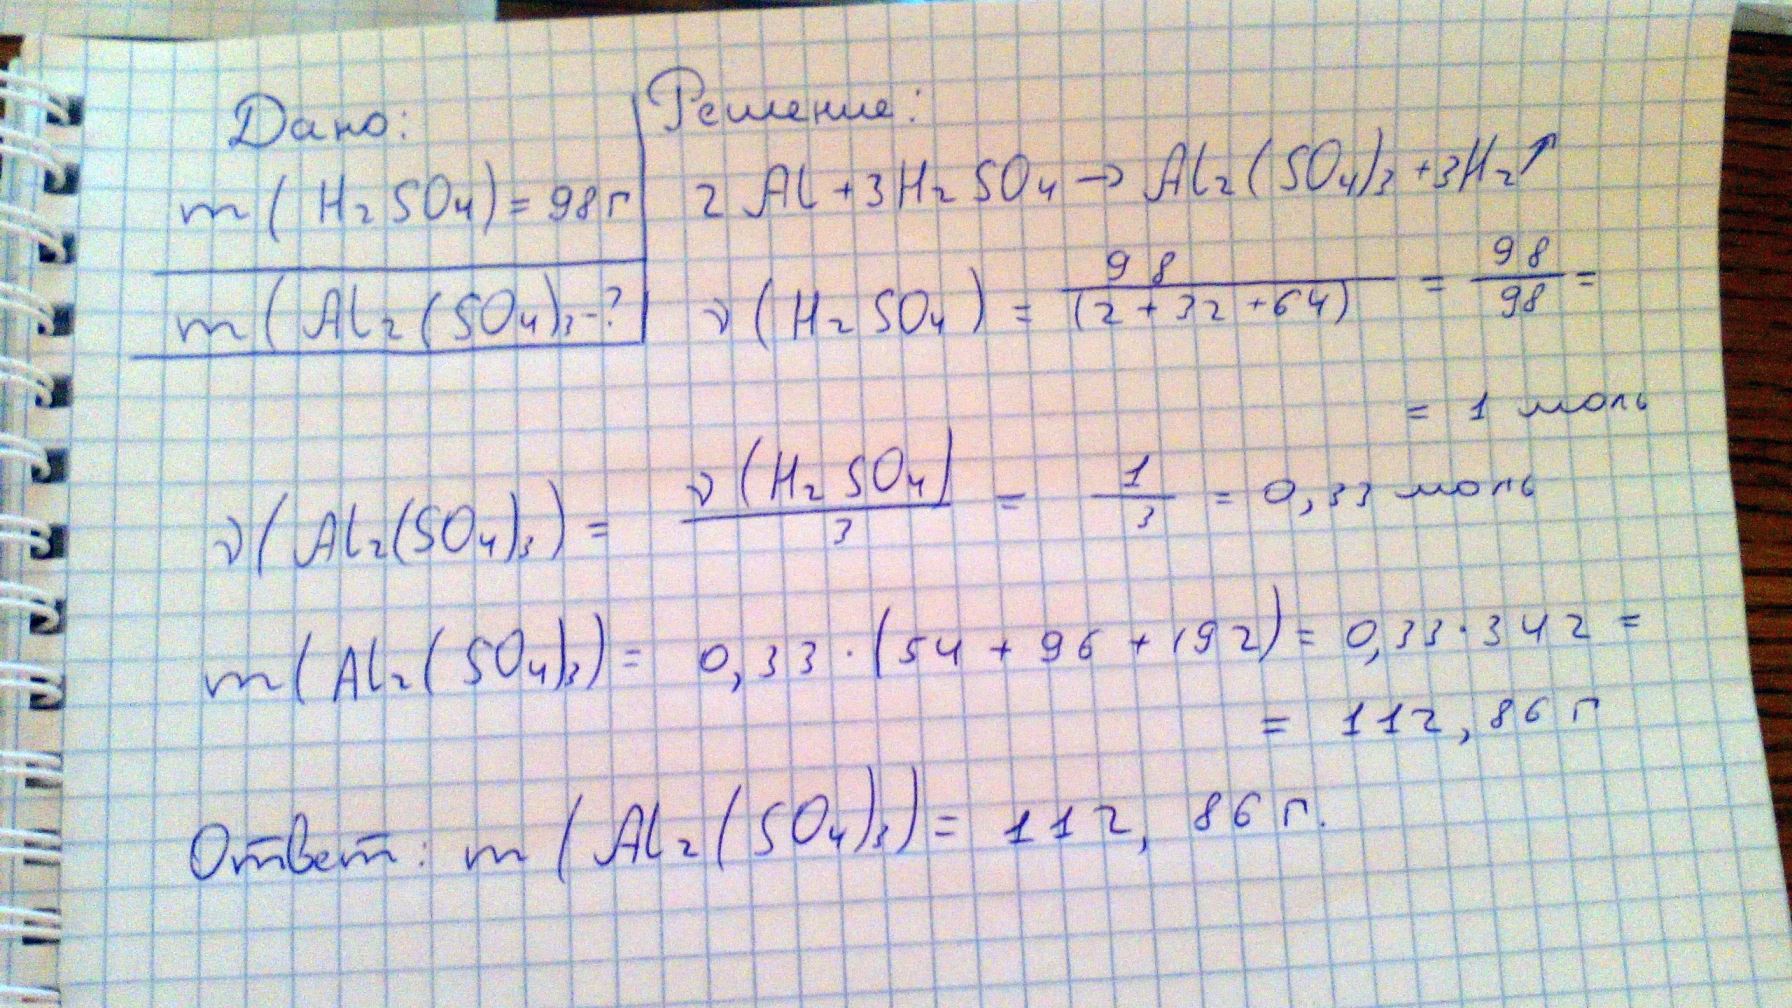 Дано:
m(H₂SO₄)=98г
m(Al₂(SO₄)₃-?
Решение:
2Al+3H₂SO₄→Al₂(SO₄)₃+3H₂↑
ν(H₂SO₄) = 98/(2+32+64) = 98/98 =
= 1 моль
ν(Al₂(SO₄)₃) = ν(H₂SO₄)/3 = 1/3 = 0,33 моль
m(Al₂(SO₄)₃) = 0,33·(54+96+192) = 0,33·342 =
= 112,86 г
Ответ: m(Al₂(SO₄)₃) = 112,86 г.